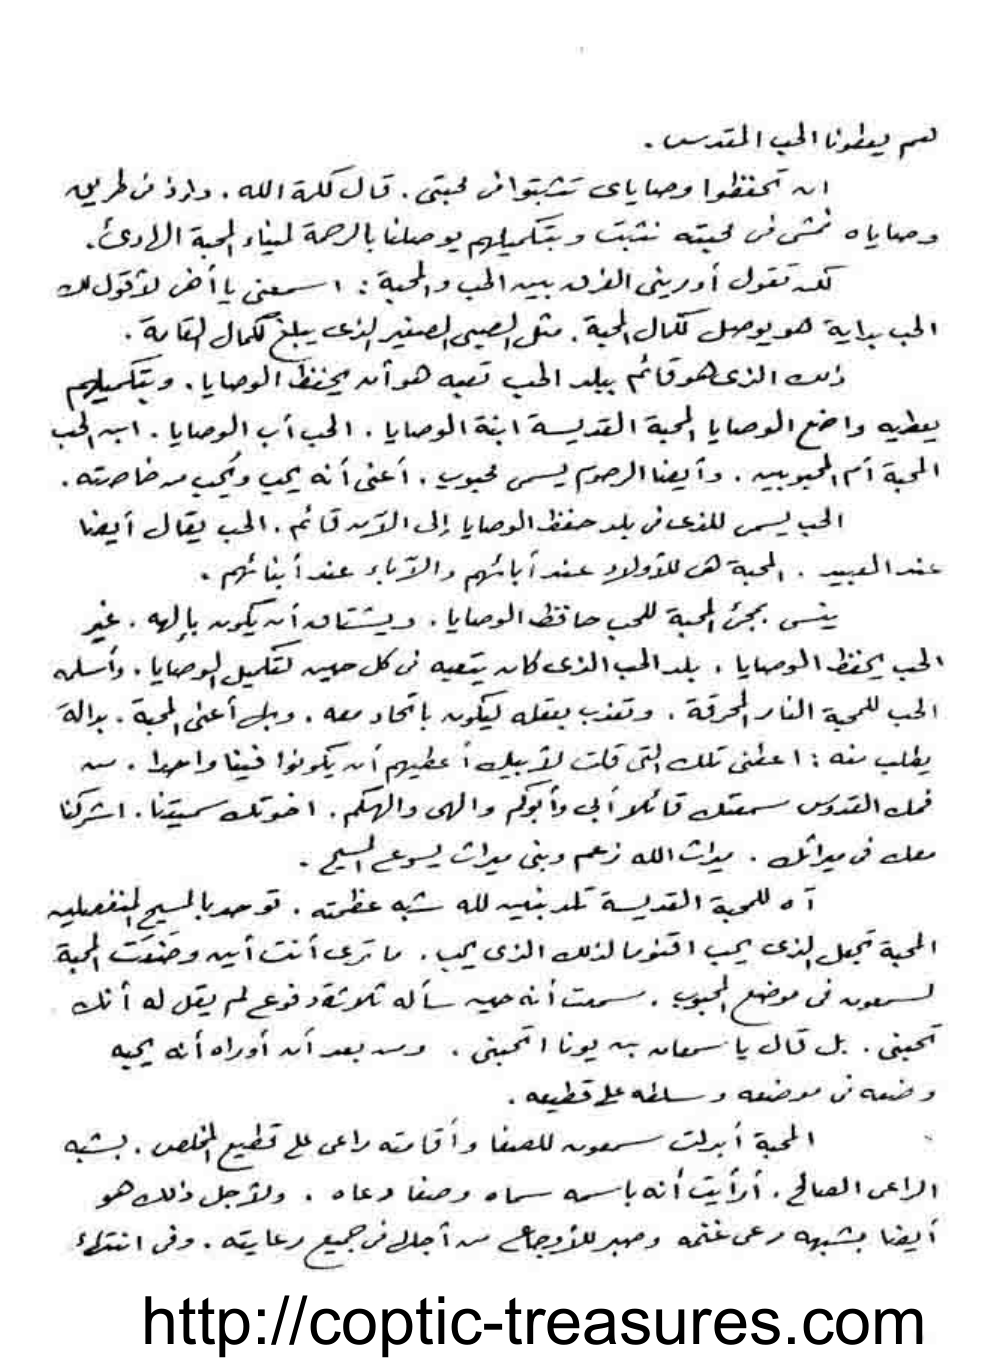 هم يعطونا الحب المقدس .
ان تحفظوا وصاياى تثبتوا فى محبتى . قال كلمة الله . واذ فى طريق
وصاياه نمشى فى محبته نثبت وبتكميلهم يوصلنا بالرحمة لميناء المحبة الهادئ .
لكن تقول أورينى الفرق بين الحب والمحبة : اسمعنى يا أخى لأقول لك
الحب بداية هو يوصل لكمال المحبة . مثل الصبى الصغير الذى يبلغ لكمال القامة .
ذلك الذى هو قائم ببلد الحب تعبه هو أن يحفظ الوصايا . وبتكميلهم
يعطيه واضع الوصايا المحبة القديسة ابنة الوصايا . الحب أب الوصايا . ابن الحب
المحبة أم المحبوبين . وأيضا الرحوم يسمى محبوب . أعنى أنه يحب ويُحب من خاصته .
الحب يسمى للذى فى بلد حفظ الوصايا إلى الآن قائم . الحب يقال أيضا
عند العبيد . المحبة هى للأولاد عند أبائهم والآباء عند أبنائهم .
ينسى بمجئ المحبة للحب حافظ الوصايا . ويشتاق أن يكون بإلهه . غير
الحب يحفظ الوصايا . بلد الحب الذى كان يتعبه فى كل حين لتكميل الوصايا . وأسلمه
الحب للمحبة النار المحرقة . وتعذب بعقله ليكون باتحاد معه . وبل أعنى المحبة . بدالة
يطلب منه : اعطنى تلك التى قلت لأبيك أعطيهم أن يكونوا فينا واحدا . من
فمك القدوس سمعتك قائلا أبى وأبوكم والهى والهكم . اخوتك سميتنا . اشركنا
معك فى ميراثك . ميراث الله زعم وبنى ميراث يسوع المسيح .
آه للمحبة القديسة تلد بنين لله شبه عظمته . توحد بالمسيح المنفصلين
المحبة تجعل الذى يحب اقنوما لذلك الذى يحب . ما ترى أنت أين وضعت المحبة
لسمعون فى موضع المحبوب . سمعت أنه حين سأله ثلاثة دفوع لم يقل له أنك
تحبنى . بل قال يا سمعان بن يونا اتحبنى . ومن بعد أن أوراه أنه يحبه
وضعه فى موضعه وسلطه على قطيعه .
المحبة أبدلت سمعون للصفا وأقامته راعى على قطيع المخلص . بشبه
الراعى الصالح . أرأيت أنه باسمه سماه وصفا دعاه . ولأجل ذلك هو
أيضا بشبهه رعى غنمه وصبر للأوجاع من أجله فى جميع رعايته . وفى
http://coptic-treasures.com